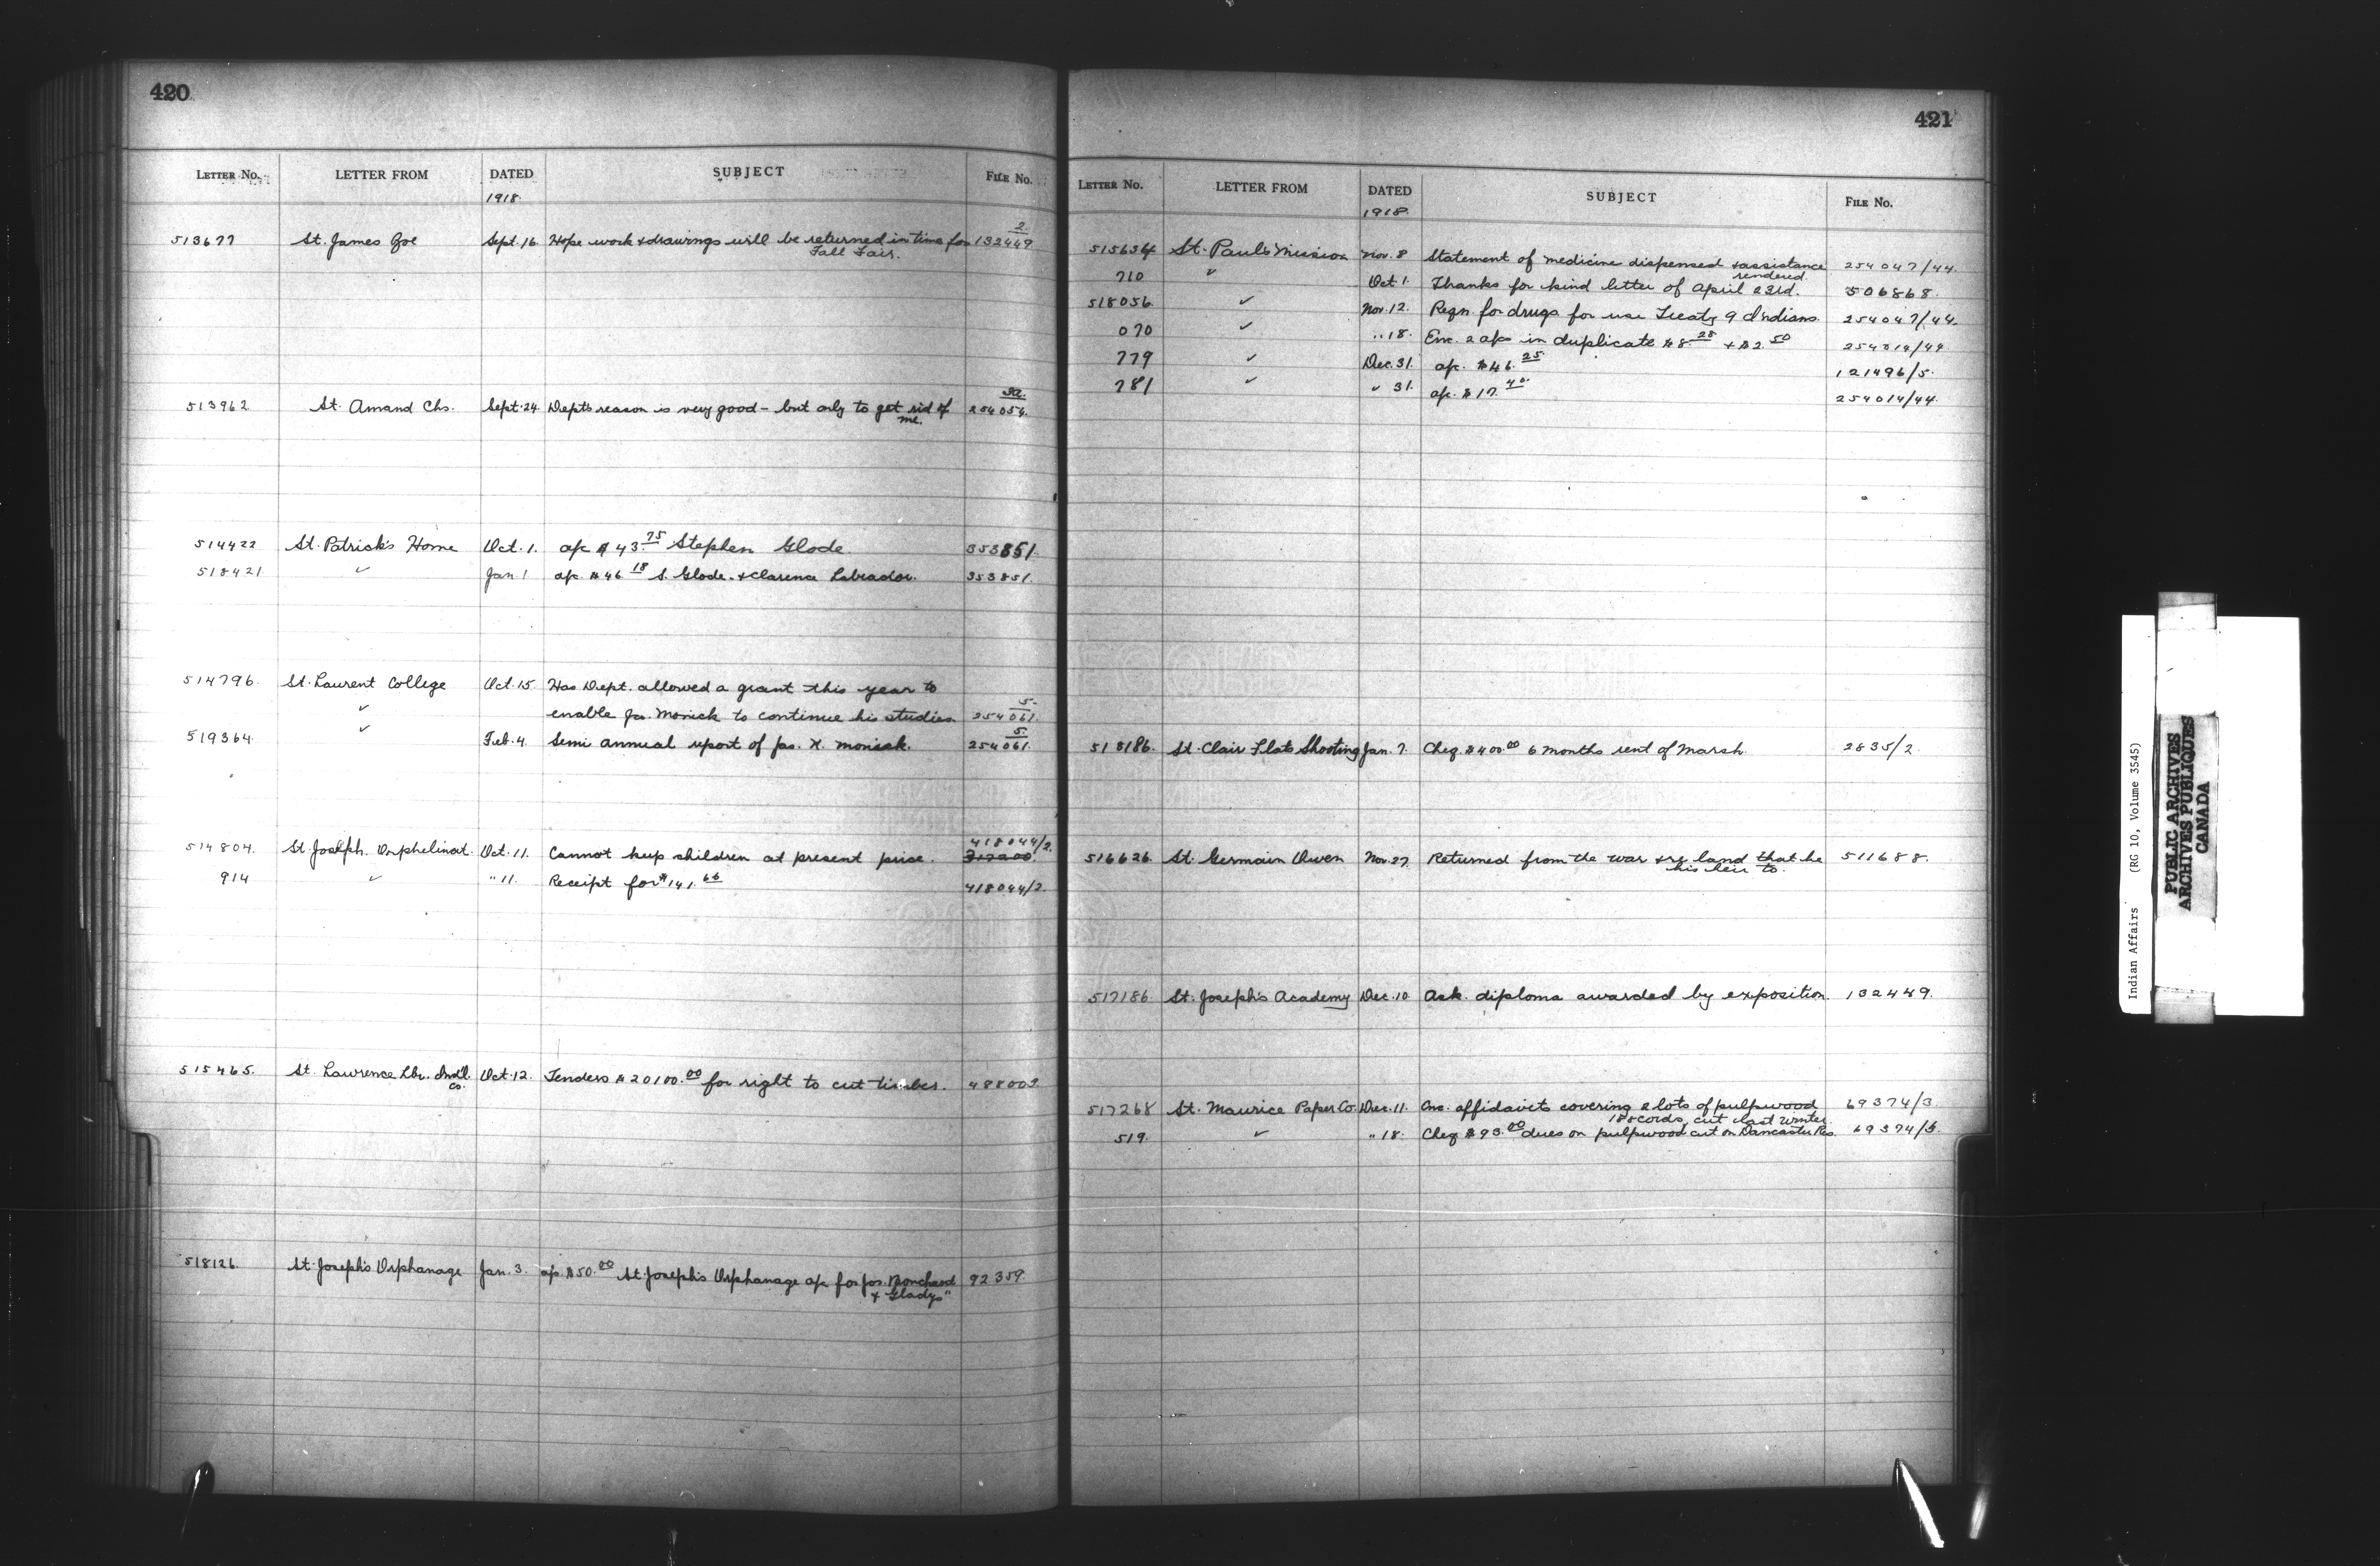 420
LETTER NO. LETTER FROM DATED SUBJECT FILE NO.
1918.
513677 St. James Joe Sept. 16. Hope work & drawings will be returned in time for 2/132449
Fall Fair.
513962 St. Amand Chs. Sept. 24. Dept's reason is very good - but only to get rid of 254054.
me.
514422 St. Patrick's Home Oct. 1. a/c $43.75 Stephen Glode. 353851.
518421 ✓ Jan. 1 a/c. $46.18 S. Glode. & Clarence Labrador. 353851.
514796. St. Laurent College Oct. 15. Has Dept. allowed a grant this year to
✓ enable Jas. Monick to continue his studies 5/254061.
519364. ✓ Feb. 4. Semi annual report of Jas. H. Monick. 5/254061.
514804. St. Joseph. Orphelinat. Oct. 11. Cannot keep children at present price. 418044/2.
914 ✓ " 11. Receipt for $141.66 418044/2.
515465. St. Lawrence Lbr. Co. Oct. 12. Tenders $20100.00 for right to cut timber. 488003.
518126. St. Joseph's Orphanage Jan. 3. a/c. $50.00 St. Joseph's Orphanage a/c for Jos. Bonchard 92359.
& Gladys"
421
LETTER NO. LETTER FROM DATED SUBJECT FILE NO.
1918.
515634 St. Paul's Mission Nov. 8 Statement of medicine dispensed & assistance 254047/44.
rendered.
710 ✓ Oct. 1. Thanks for kind letter of April 23rd. 506868.
518056. ✓ Nov. 12. Reqn. for drugs for use Treaty 9 Indians. 254047/44.
070 ✓ " 18. Enc. 2 a/cs in duplicate $8.28 + $2.50 254014/44.
779 ✓ Dec. 31. a/c. $46.25. 121496/5.
781 ✓ " 31. a/c. $17.40. 254014/44.
518186. St. Clair Flats Shooting Jan. 7. Cheq. $400.00 6 months rent of Marsh. 2835/2.
516626. St. Germain Owen Nov. 27. Returned from the war & re land that he 511688.
his heir to.
517186. St. Joseph's Academy Dec. 10. Ack. diploma awarded by exposition. 132449.
517268 St. Maurice Paper Co. Dec. 11. Enc. affidavits covering 2 lots of pulpwood 69374/3.
cords, cut last winter.
519. ✓ " 18. Cheq $93.00 dues on pulpwood cut on Res. 69374/3.
Indian Affairs (RG 10, Volume 3545)
PUBLIC ARCHIVES
ARCHIVES PUBLIQUES
CANADA